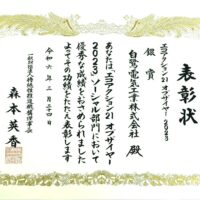 表彰状
エコアクション21 オブザイヤー2023
銀賞
白鷺電気工業株式会社 殿
あなたは「エコアクション21 オブザイヤー
2023」ソーシャル部門において
優秀な成績をおさめられました
よってその功績をたたえ表彰します
令和六年二月二十四日
一般財団法人持続性推進機構理事長
森本英香